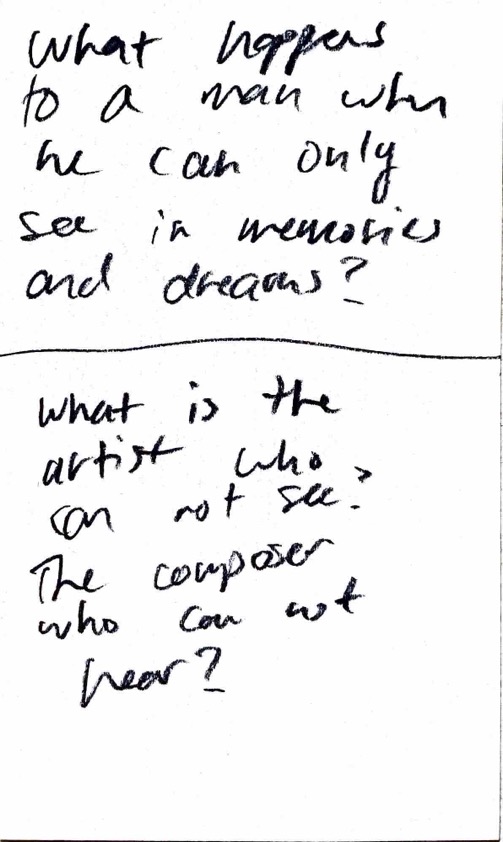 What happens
to a man when
he can only
see in memories
and dreams?
What is the
artist who
can not see?
The composer
who can not
hear?